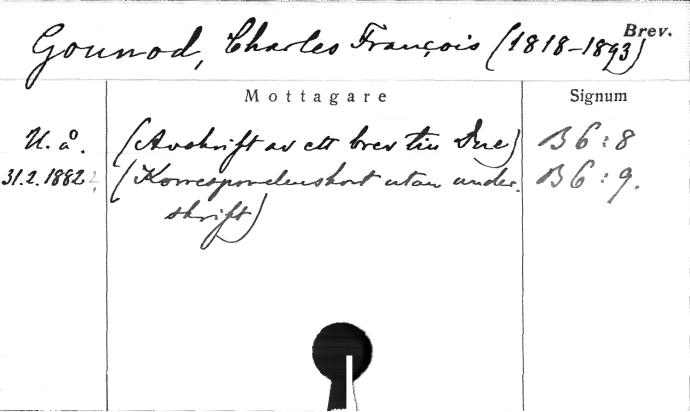 Brev.
Gounod, Charles François (1818-1893)
Mottagare Signum
U. å. (Avskrift av ett brev till Due) B 6 : 8
31.2.1882 (Korrespondenskort utan under- B 6 : 9.
skrift)